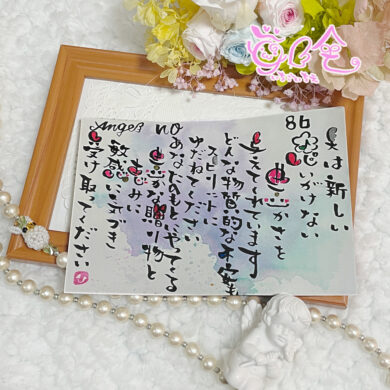 Angel No 86
天は新しい
思いがけない
豊かさを
与えてくれています
どんな物質的な不安も
スピリットに
ゆだねてください
あなたのもとにやってくる
豊かな贈り物と
敏感に気づき
受け取ってください